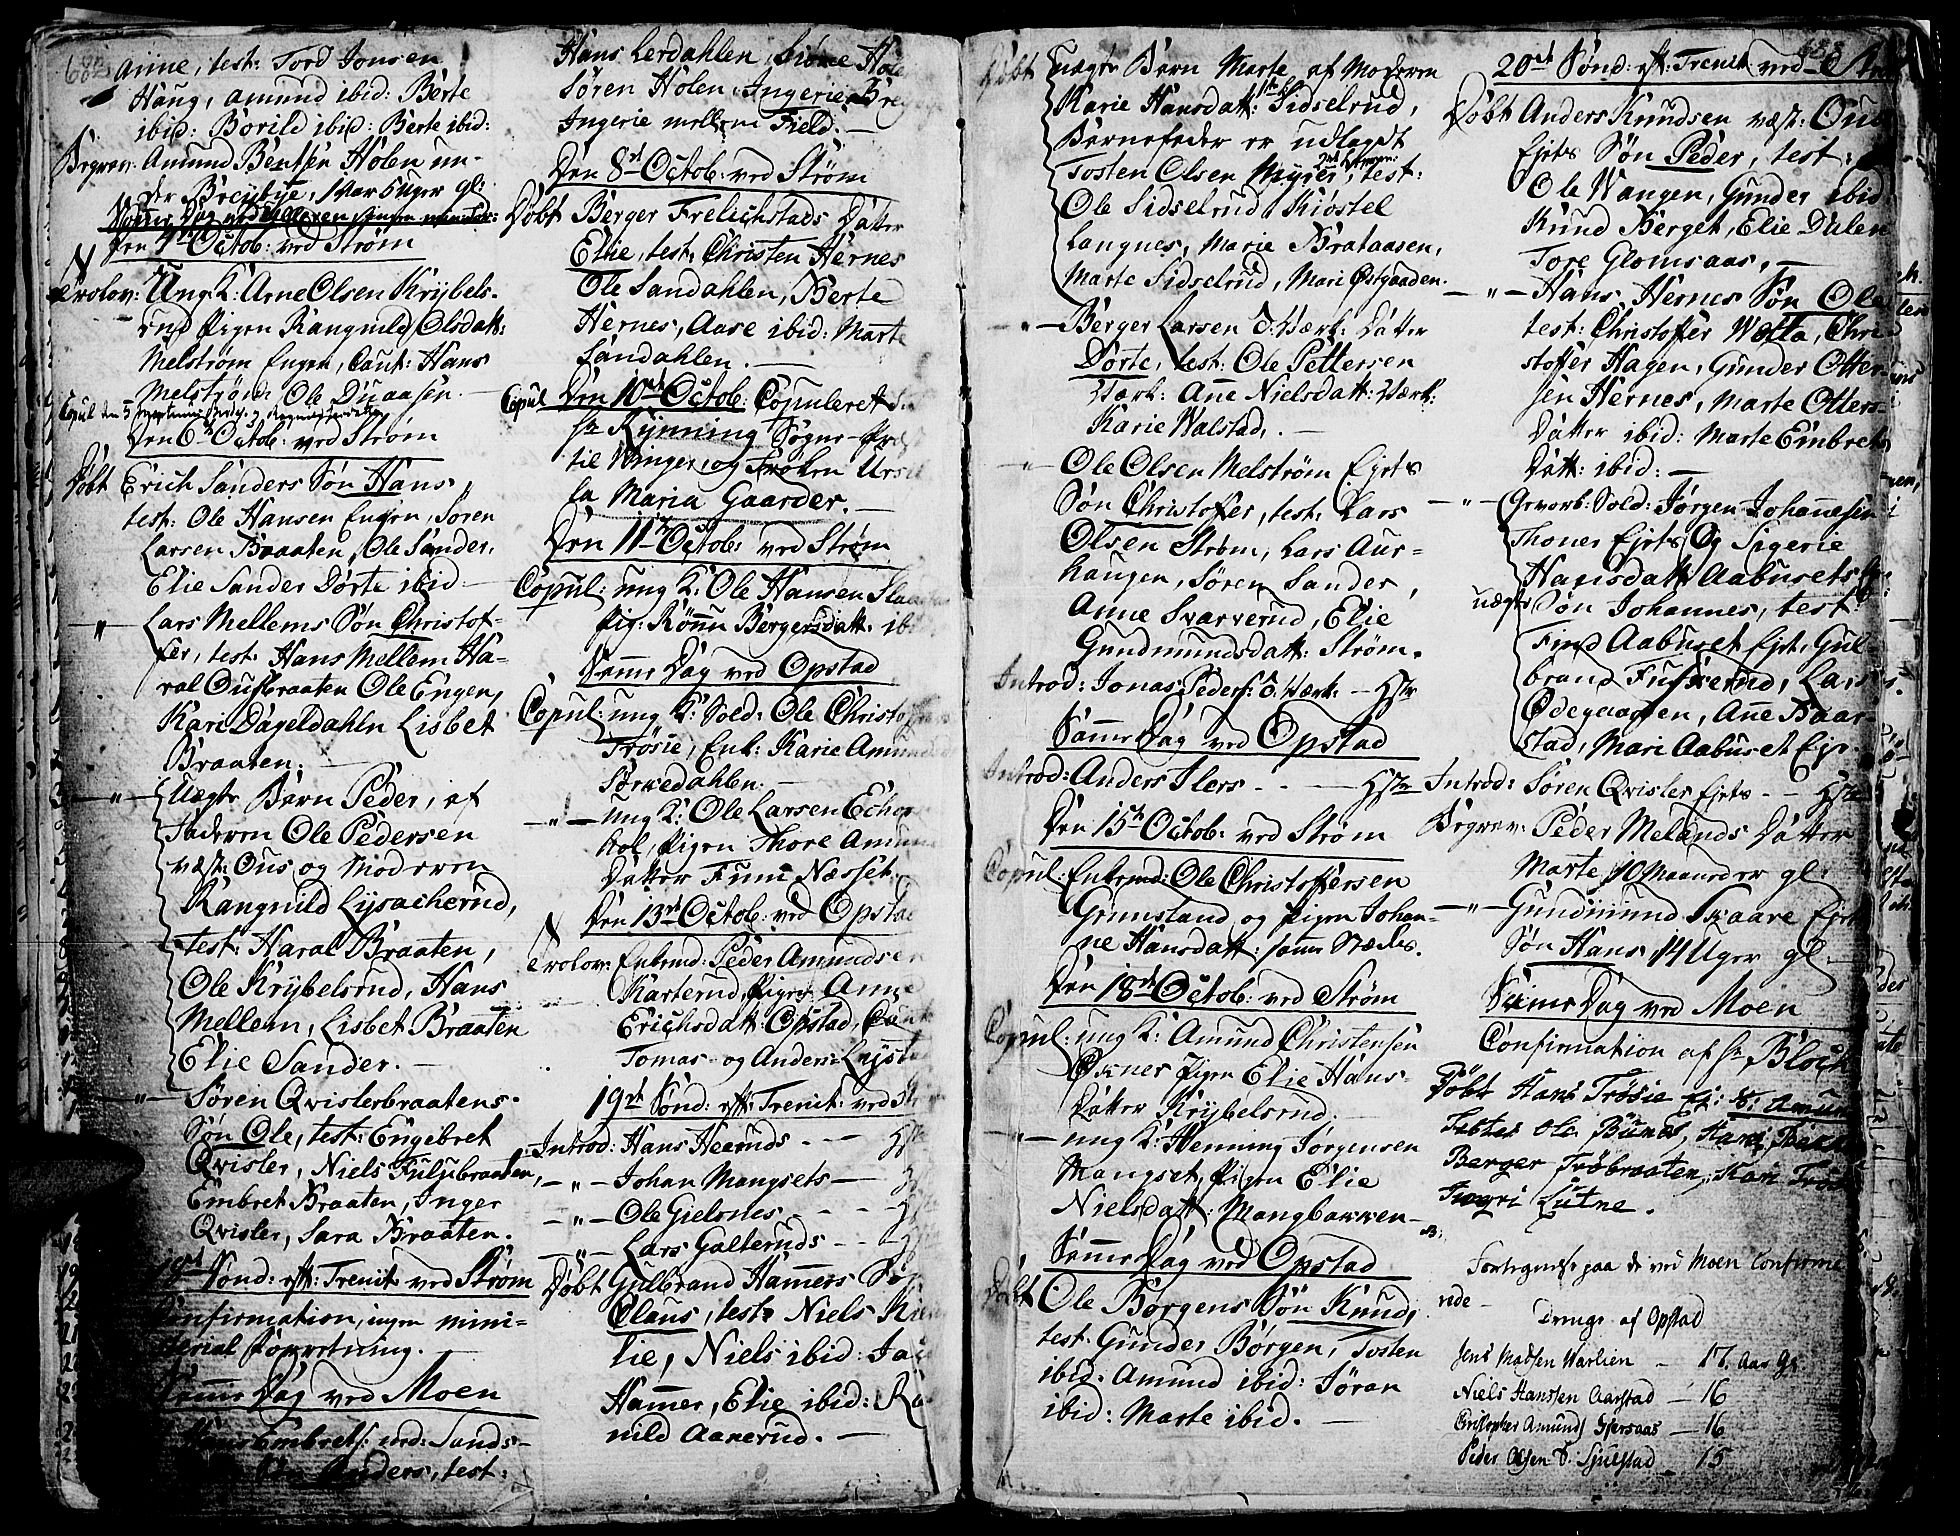 682
Anne, test: Tord Jonsen
Haug, Amund ibid: Berte
ibid: Borild ibid: Berte ibid:
Begrav: Amund Bentsen Holen un-
der Breybye, 1 aar 6 uger gl:
Den 4de Octob: ved Strøm
Trolov: Ung K: Arne Olsen Krybels-
rud Pigen Rangnild Olsdatt:
Melstrøm Engen, Caut: Hans
Melstrøm, Ole Duaasen.
Den 6te Octob: ved Strøm
Døbt Erich Sanders Søn Hans,
test: Ole Hansen Engen, Søren
Larsen Braaten, Ole Sander,
Elie Sander Dorte ibid: —
—"— Lars Mellems Søn Christof-
fer, test: Hans Mellem Ha-
ral Ousbraaten Ole Engen,
Kari Dageldahln Lisbet
Braaten. —
—"— Uægte Barn Peder, af
Faderen Ole Pedersen
væst: Ous og Moderen
Rangnild Lysacherud,
test: Haral Braaten,
Ole Krybelsrud, Hans
Mellem, Lisbet Braaten
Elie Sander. —
—"— Søren Qvislerbraatens
Søn Ole, test: Engebret
Qvisler, Niels Fulubraaten,
Embret Braaten, Inger
Qvisler, Sara Braaten.
18de Sønd: eft: Trenit: ved Strøm
Confirmation, ingen mini-
sterial Forretning. —
Samme Dag ved Moen
Hans Embrets: Sands-
Søn Anders, test:
Hans Lerdahlen, Siøne Hole
Søren Holen, Ingerie
Ingerie mellem Field. —
Den 8de Octob: ved Strøm
Døbt Berger Frelichstads Datter
Elie, test: Christen Hernes
Ole Sandahlen, Berte
Hernes, Aase ibid: Marte
Sandahlen. —
Copul Den 10de Octob: Copuleret
Hr Rynning Sogne-Præst
til Winger, og Frøken Ursu
la Maria Gaarder. —
Den 11te Octob: ved Strøm
Copul: ung K: Ole Hansen
Pig: Rønnu Bergersdatt: ibi
Samme Dag ved Opstad
Copul: ung K: Sold: Ole Christof
Trøsie, Enk: Karie Amunds
Sørkedahlen. —
—"— ung K: Ole Larsen
hol, Pigen Thore Amun
Datter Funu Næsset.
Den 13de Octob: ved Opstad
Trolov: Enkmd: Peder Amundsen
Karterud, Pigen Anne
Erichsdatt: Opstad, Caut
Tomas- og Anders Lyst
19de Sønd: eft: Trenit: ved Str
Introd: Hans Heeruds - - — Hstr
—"— Johan Mangsets —
—"— Ole Gielsnes - - - Hstr
—"— Lars Galteruds - - Hstr
Døbt Gulbrand Hamers Søn
Claus, test: Niels
lie, Niels ibid:
Hamer, Elie ibid:
nild Aanerud. —
683
Døbt Uægte Barn Marte af Moderen
Karie Hansdatt: Sidselrud,
Barnefader er udlagdt
Tosten Olsen Myrer, test:
Ole Sidselrud, Kiøstel
Langnes, Marie Brataasen,
Marte Sidselrud, Mari Østgaarden.
—"— Berger Larsen O: Værk: Datter
Dorte, test: Ole Pettersen
Værk: Ane Nielsdatt: Værk:
Karie Walstad. —
—"— Ole Olsen Melstrøm Ejets
Søn Christoffer, test: Lars
Olsen Strøm, Lars Aur-
haugen, Søren Sander,
Anne Svarverud, Elie
Gundmundsdatt: Strøm.
Introd: Jonas Peders: O: Værk: — Hstr
Samme Dag ved Opstad
Introd: Anders Ilers - - — Hstr
Den 15de Octob: ved Strøm
Copul: Enkmd: Ole Christoffersen
Grimsland og Pigen Johan-
ne Hansdatt: samme Stædes.
Den 18de Octob: ved Strøm
Copul: ung K: Amund Christensen
Øxnes Pigen Elie Hans-
Datter Krybelsrud.
—"— ung K: Henning Jørgensen
Mangset, Pigen Elie
Nielsdatt: Mangbakken —
Samme Dag ved Opstad
Døbt Ole Børgens Søn Knud,
test: Gunder Børgen, Tosten
ibid. Amund ibid: Jøran
ibid: Marte ibid. —
20de Sønd: eft: Trenit: ved Str
Døbt Anders Knudsen væst: Ous
Ejets Søn Peder, test:
Ole Wangen, Gunder ibid
Knud Berget, Elie Dalen
Tore Glomsaas, —
—"— Hans Hernes Søn Ole
test: Christoffer Wolta, Chri-
stoffer Hagen, Gunder Otter-
sen Hernes, Marte Otters-
Datter ibid: Marte Embrets
Datt: ibid: —
—"— Gevorb: Sold: Jørgen Johannesen
Thoner Ejets Og Sigerie
Hansdatt: Aabusets
uægte Søn Johannes, test:
Find Aabuset Ejet, Gul
brand Fuskerud, Lars
Ødegaarden, Ane Baar-
stad, Mari Aabuset Eje. —
Introd: Søren Qvisler Ejets - - Hstr
Begrav: Peder Melands Datter
Marte 10 Maaneder gl:
—"— Gundmund Skaare Ejets
Søn Hans 14 Uger gl. —
Samme Dag ved Moen
Confirmation af Hr Bloch
Døbt Hans Trøsie Ej: S. Amun
Testes Ole Bunes, Hans
Berger Frøbraaten, Kari Trøsi
Ingri Lutne.
NB: Fortegnelse paa de ved Moen Confirme
rede —
Drenge af Opstad
Jens Madsen Warlien — 17. Aar gl.
Niels Hansen Aarstad — 16
Cristopher Amunds: Spersaas — 16
Peder Olsen B. Siulstad — 15